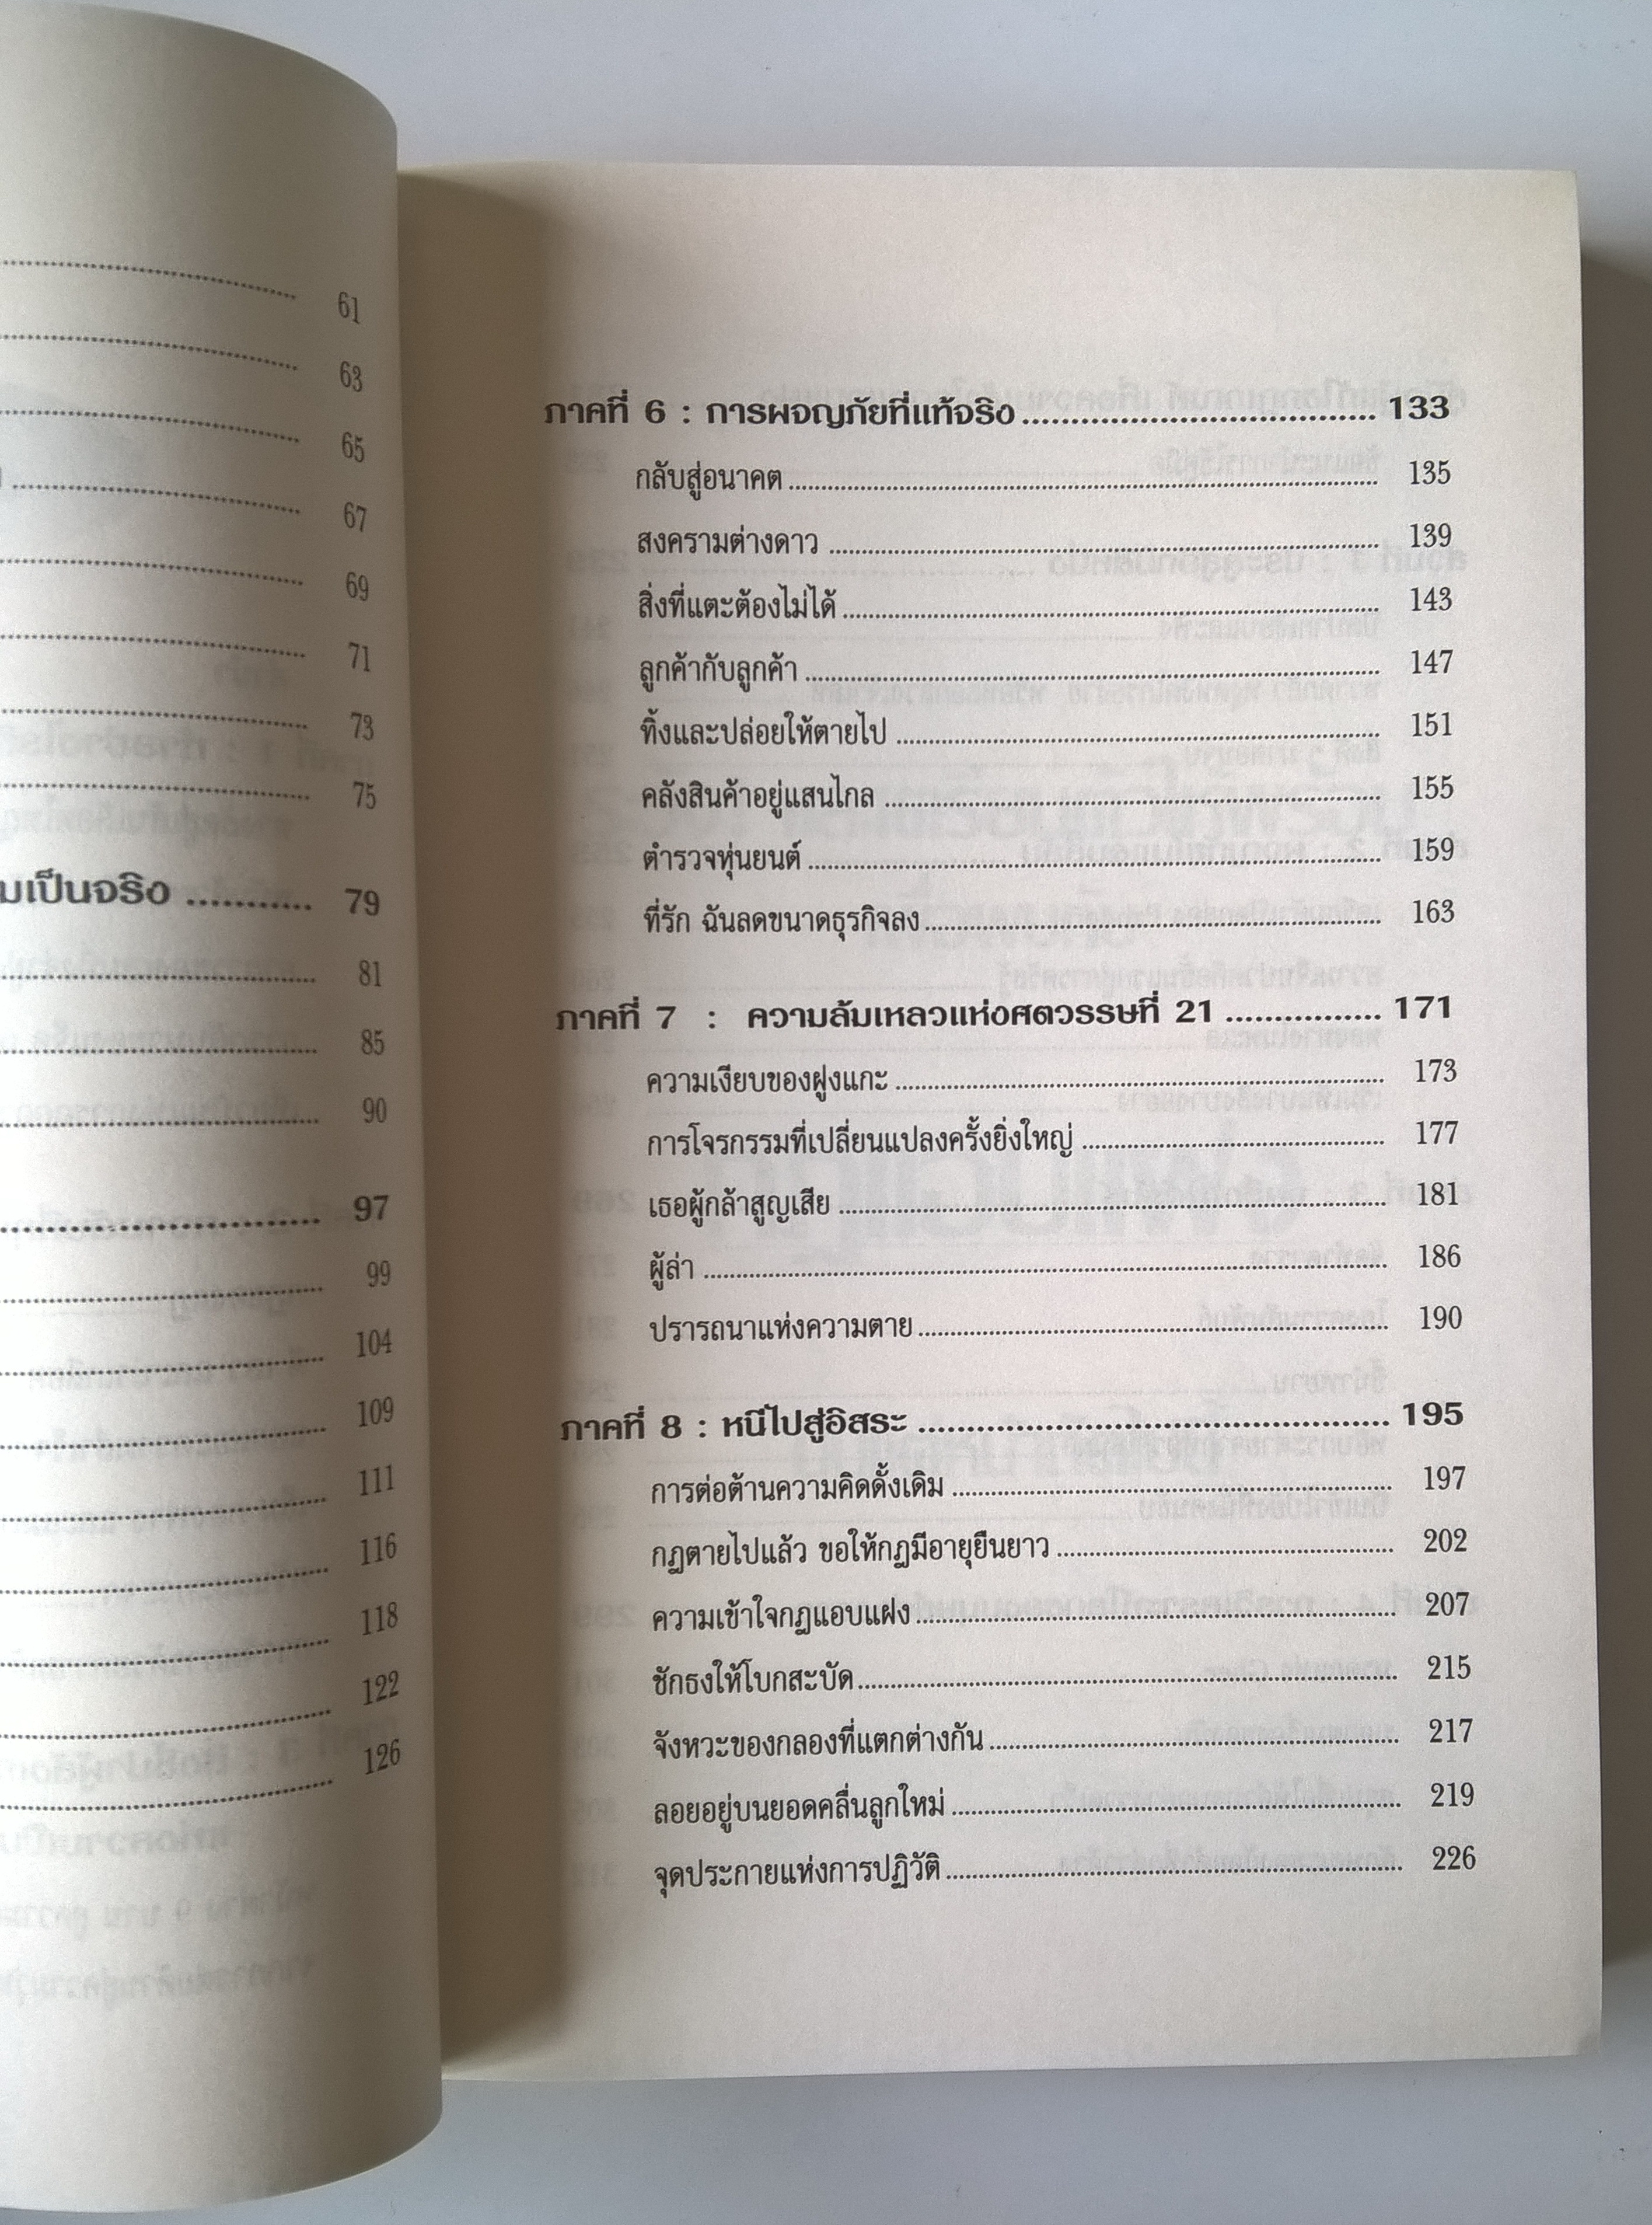 61
63
65
67
69
71
73
75
มเป็นจริง ........... 79
81
85
90
97
99
104
109
111
116
118
122
126
ภาคที่ 6 : การผจญภัยที่แท้จริง .................................... 133
กลับสู่อนาคต ........................ 135
สงครามต่างดาว ........................ 139
สิ่งที่แตะต้องไม่ได้ ........................ 143
ลูกค้ากับลูกค้า ........................ 147
ทิ้งและปล่อยให้ตายไป ........................ 151
คลังสินค้าอยู่แสนไกล ........................ 155
ตำรวจหุ่นยนต์ ........................ 159
ที่รัก ฉันลดขนาดธุรกิจลง ........................ 163
ภาคที่ 7 : ความล้มเหลวแห่งศตวรรษที่ 21 ................ 171
ความเงียบของฝูงแกะ ........................ 173
การโจรกรรมที่เปลี่ยนแปลงครั้งยิ่งใหญ่ ........................ 177
เธอผู้กล้าสูญเสีย ........................ 181
ผู้ล่า ........................ 186
ปรารถนาแห่งความตาย ........................ 190
ภาคที่ 8 : หนีไปสู่อิสระ ................................................ 195
การต่อต้านความคิดดั้งเดิม ........................ 197
กฎตายไปแล้ว ขอให้กฎมีอายุยืนยาว ........................ 202
ความเข้าใจกฎแอบแฝง ........................ 207
ชักธงให้โบกสะบัด ........................ 215
จังหวะของกลองที่แตกต่างกัน ........................ 217
ลอยอยู่บนยอดคลื่นลูกใหม่ ........................ 219
จุดประกายแห่งการปฏิวัติ ........................ 226